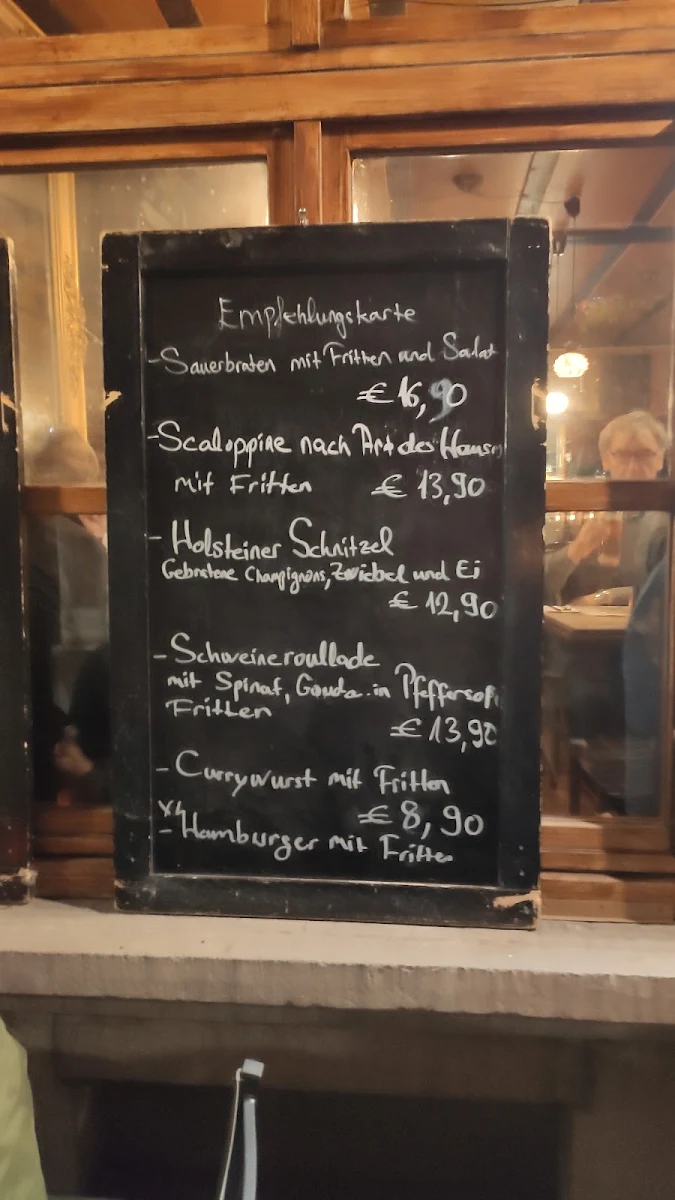 Empfehlungskarte
- Sauerbraten mit Fritten und Salat
€ 16,90
- Scaloppine nach Art des Hauses
mit Fritten € 13,90
- Holsteiner Schnitzel
Gebratene Champignons, Zwiebel und Ei
€ 12,90
- Schweineroullade
mit Spinat, Gouda in
Fritten
€ 13,90
- Currywurst mit Fritten
€ 8,90
- Hamburger mit Fritten